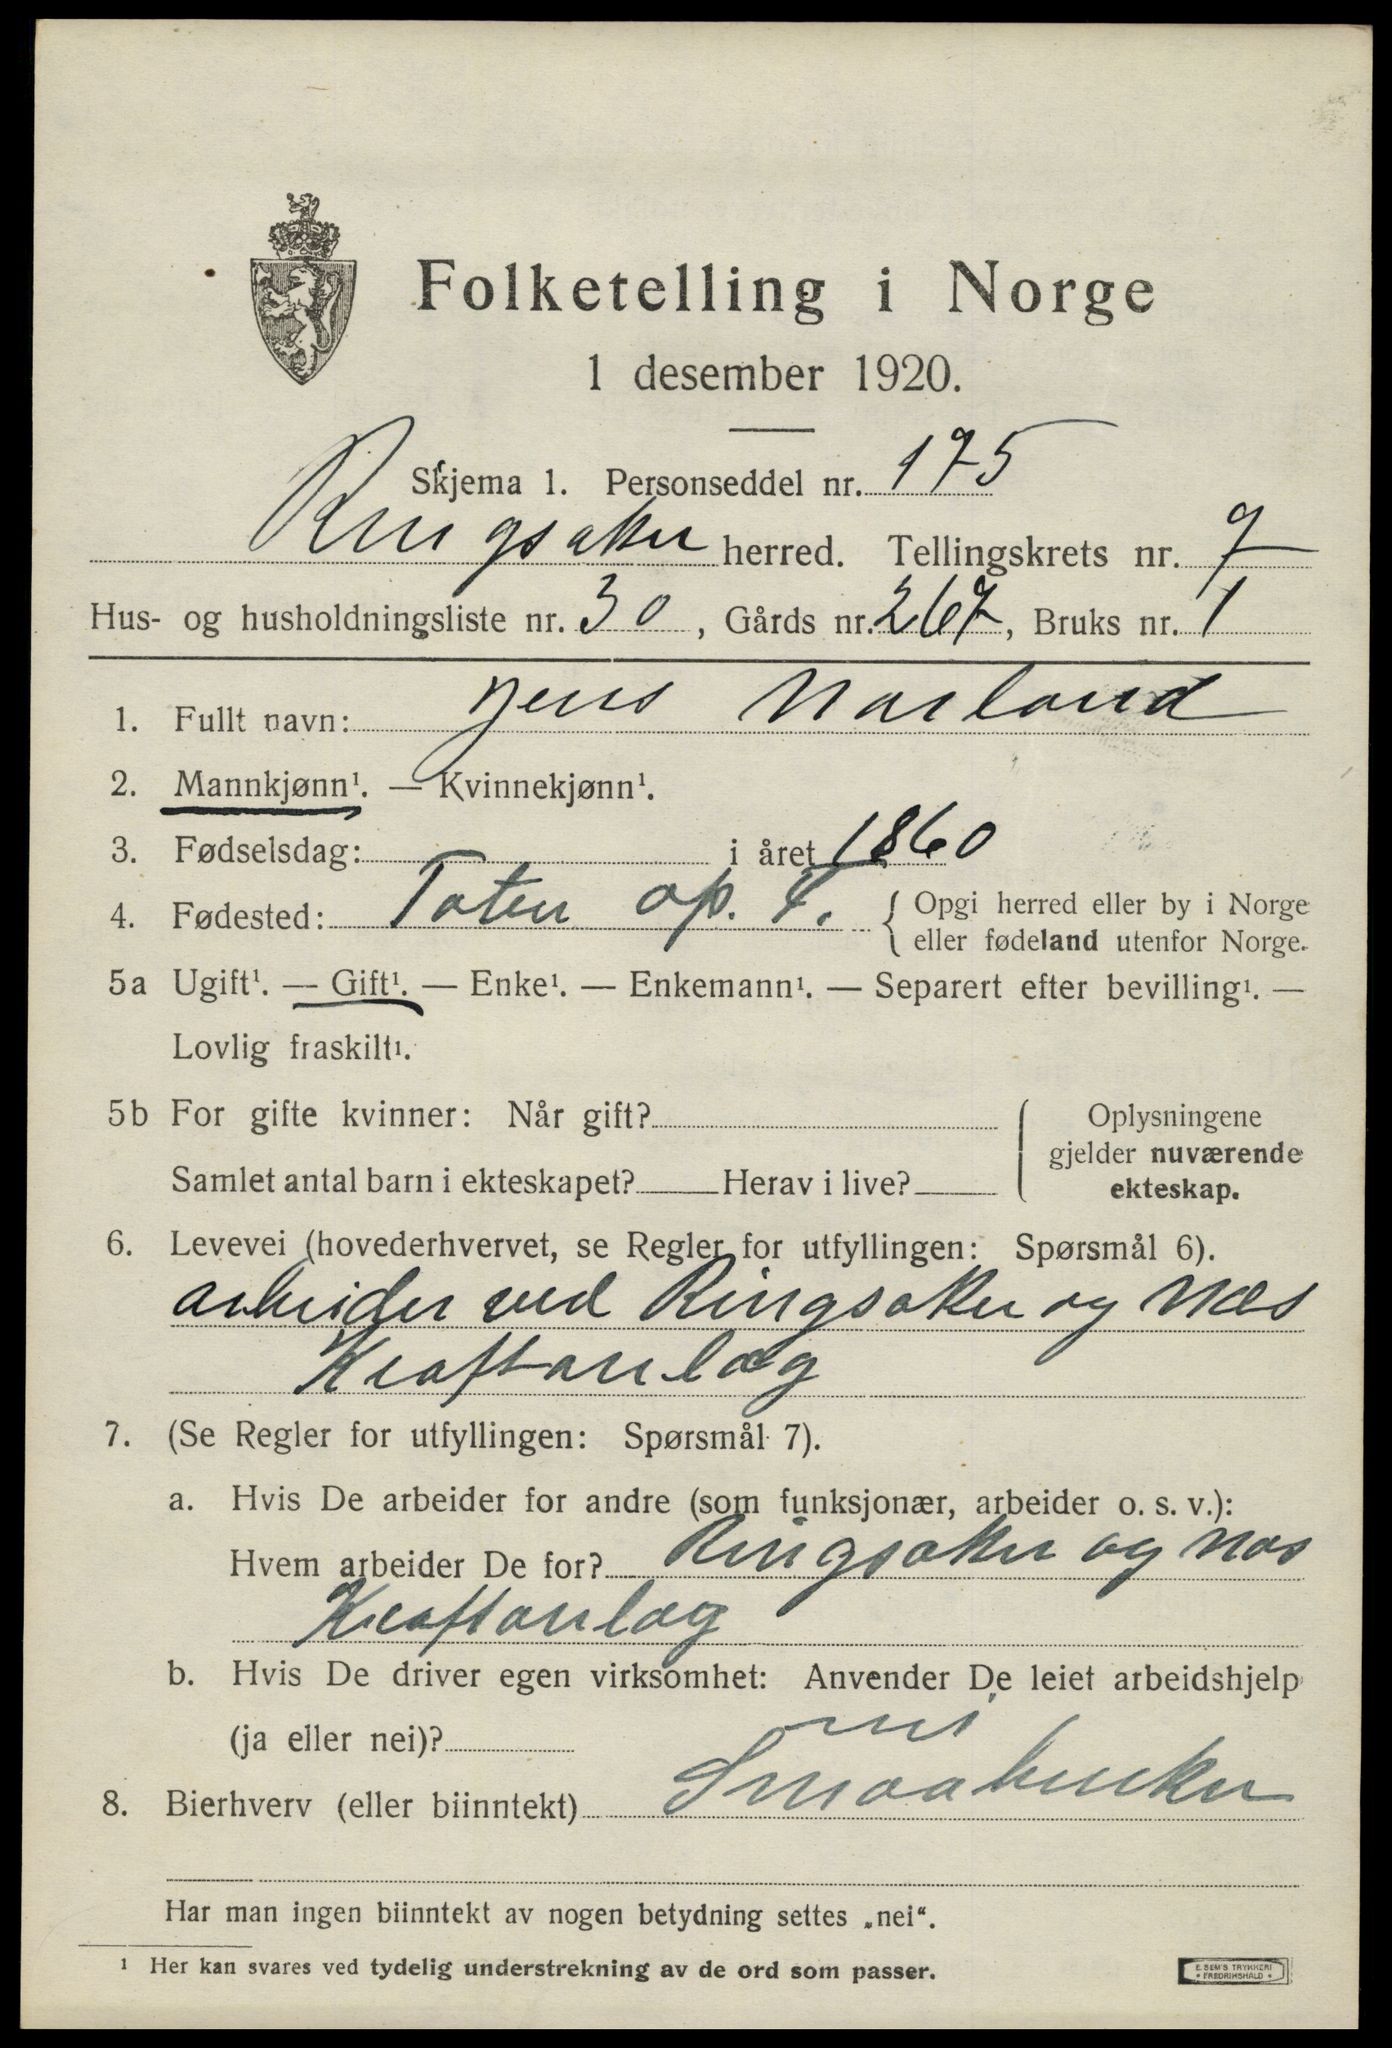 Folketelling i Norge
1 desember 1920.
Skjema 1. Personseddel nr. 175
Ringsaker herred. Tellingskrets nr. 7
Hus- og husholdningsliste nr. 30, Gårds nr. 267, Bruks nr. 1
1. Fullt navn: Jens Norland
2. Mannkjønn¹. — Kvinnekjønn¹.
3. Fødselsdag: i året 1860
4. Fødested: Toten op. T. { Opgi herred eller by i Norge
eller fødeland utenfor Norge.
5a Ugift¹. — Gift¹. — Enke¹. — Enkemann¹. — Separert efter bevilling¹. —
Lovlig fraskilt¹.
5b For gifte kvinner: Når gift?
Samlet antal barn i ekteskapet? Herav i live?
Oplysningene
gjelder nuværende
ekteskap.
6. Levevei (hovederhvervet, se Regler for utfyllingen: Spørsmål 6).
arbeider ved Ringsaker og Næs
Kraftanlæg
7. (Se Regler for utfyllingen: Spørsmål 7).
a. Hvis De arbeider for andre (som funksjonær, arbeider o. s. v.):
Hvem arbeider De for? Ringsaker og Næs
Kraftanlæg
b. Hvis De driver egen virksomhet: Anvender De leiet arbeidshjelp
(ja eller nei)? nei
8. Bierhverv (eller biinntekt) Smaabruker
Har man ingen biinntekt av nogen betydning settes „nei“.
¹ Her kan svares ved tydelig understrekning av de ord som passer.
E. SEM'S TRYKKERI
• FREDRIKSHALD •